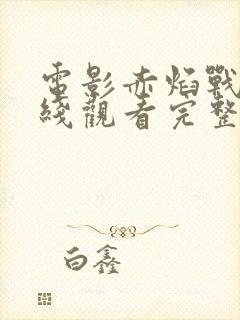 電影赤焰戰
綫觀看完整
白鑫